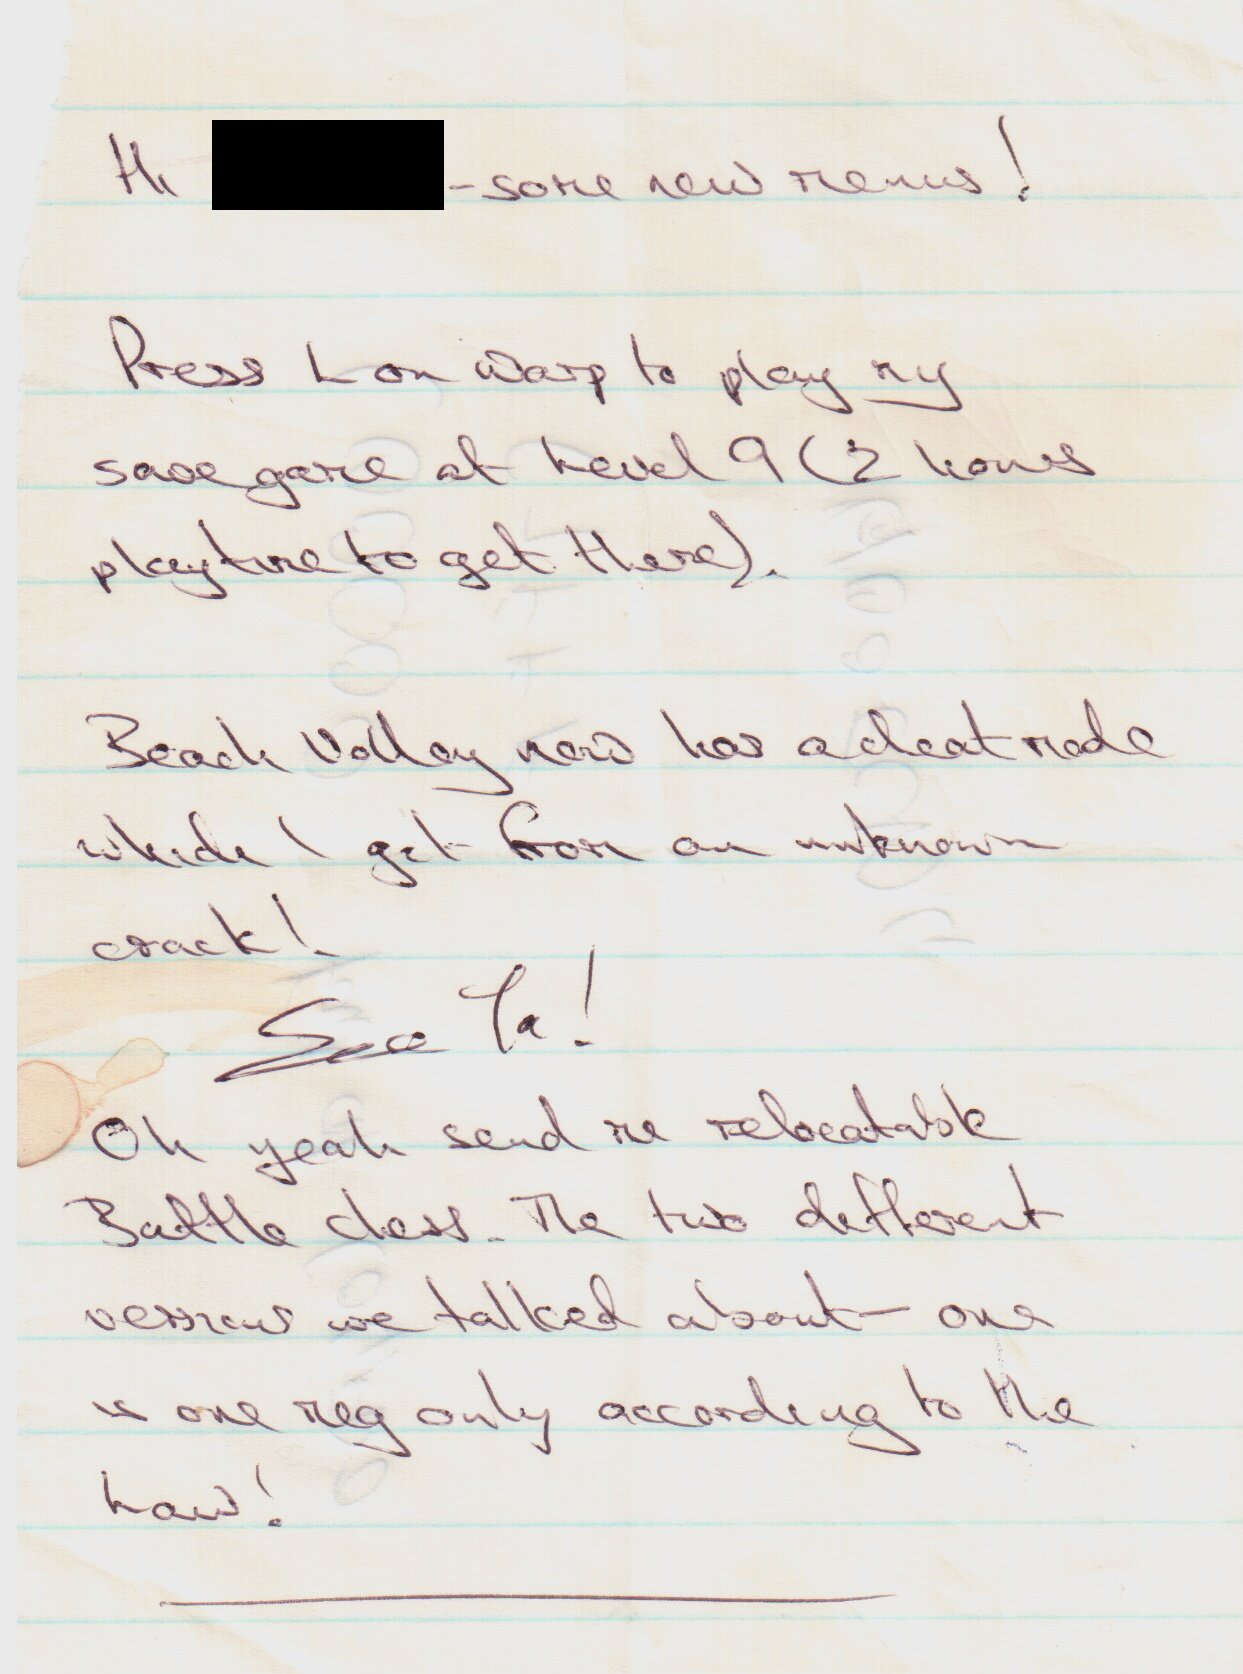 Hi -some new menus!
Press L on Warp to play my
savegame at Level 9 (2 hours
playtime to get there).
Beach Volley now has a cheatmode
which I got from an unknown
crack!
See Ya!
Oh yeah send me relocatable
Battle chess. The two different
versions we talked about - one
is one meg only according to the
Law!